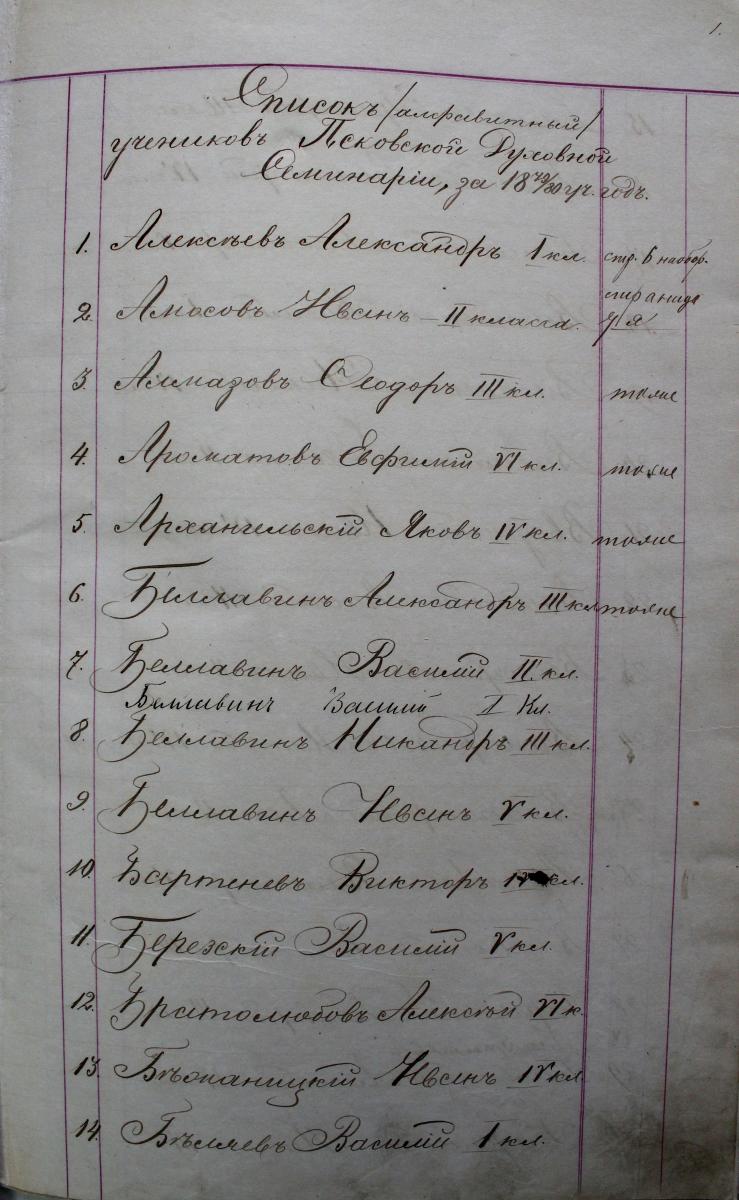 1.
Списокъ /алфавитный/
учениковъ Псковской Духовной
Семинаріи, за 1879/80 уч. годъ.
1. Алексѣевъ Александръ I кл. стр. 6 на обор.
страница
2. Амосовъ Иванъ – II класса. 7/я
3. Алмазовъ Ѳеодоръ III кл. тоже
4. Ароматовъ Евфимій VI кл. тоже
5. Архангельскій Яковъ IV кл. тоже
6. Беллавинъ Александръ III кл тоже
7. Беллавинъ Василій II кл.
Беллавинъ Василий I Кл.
8. Беллавинъ Никандръ III кл.
9. Беллавинъ Иванъ V кл.
10. Бартеневъ Викторъ IV кл.
11. Березскій Василій V кл.
12. Братолюбовъ Алексѣй VI к.
13. Бѣжаницкій Иванъ IV кл
14. Бѣляевъ Василій I кл.